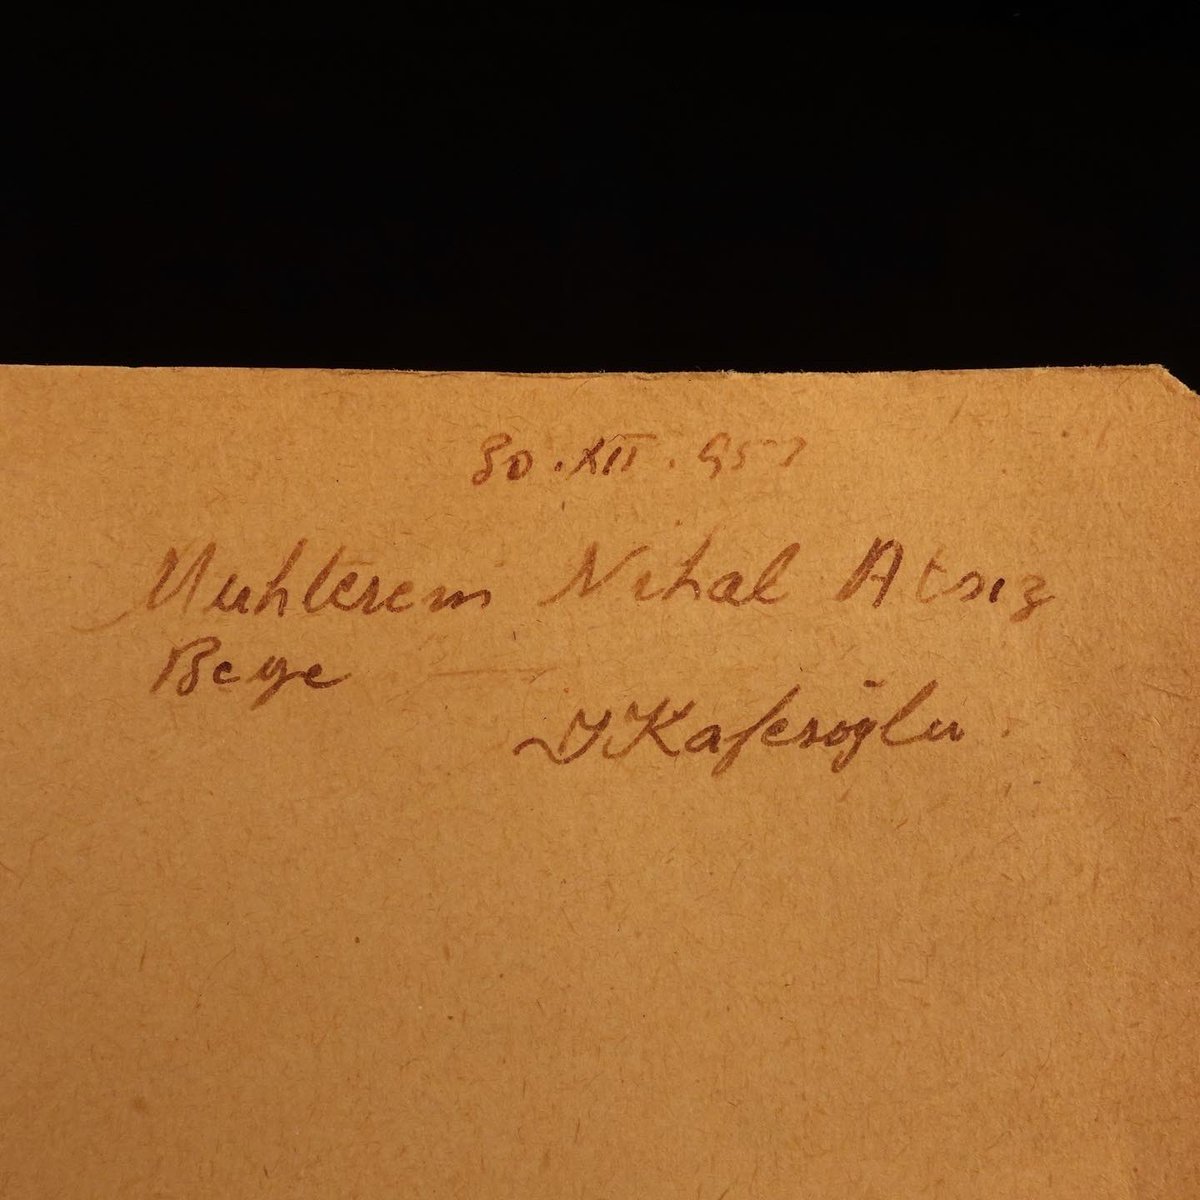 30.XII.957
Muhterem Nihal Atsız
Beye
İKafesoğlu